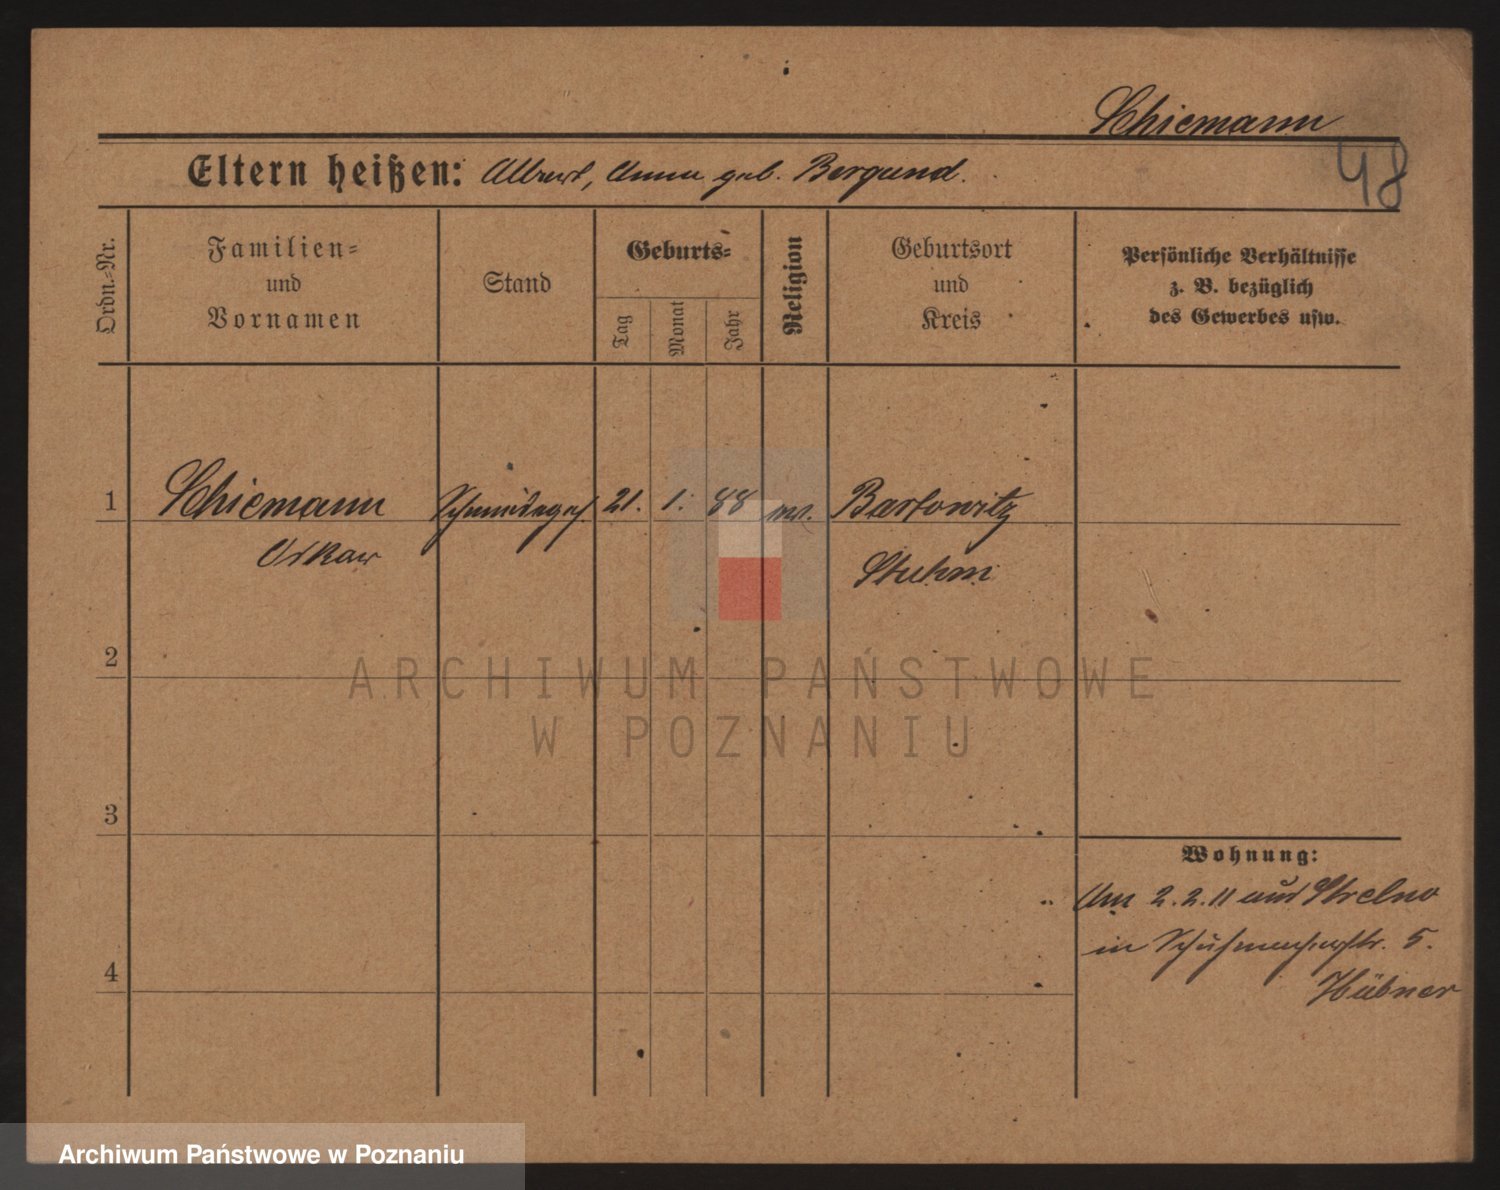 Schiemann
48
Eltern heißen: Albert, Anna geb. Bergund.
Ordn.-Nr.
Familien-
und
Vornamen
Stand
Geburts-
Tag
Monat
Jahr
Religion
Geburtsort
und
Kreis
Persönliche Verhältnisse
z. B. bezüglich
des Gewerbes usw.
1 Schiemann Schmiedeges. 21. 1. 88 ev. Barlowitz
Oskar Stuhm
2
ARCHIWUM PAŃSTWOWE
W POZNANIU
3
Wohnung:
Am 2.2.11 aus Strelno
in Schuhmacherstr. 5.
4
Hübner
Archiwum Państwowe w Poznaniu